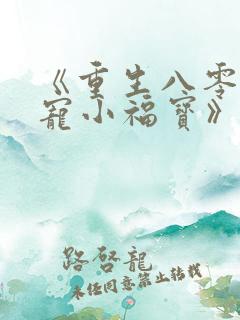 《重生八零
寵小福寶》
路啓龍
未經同意禁止轉載